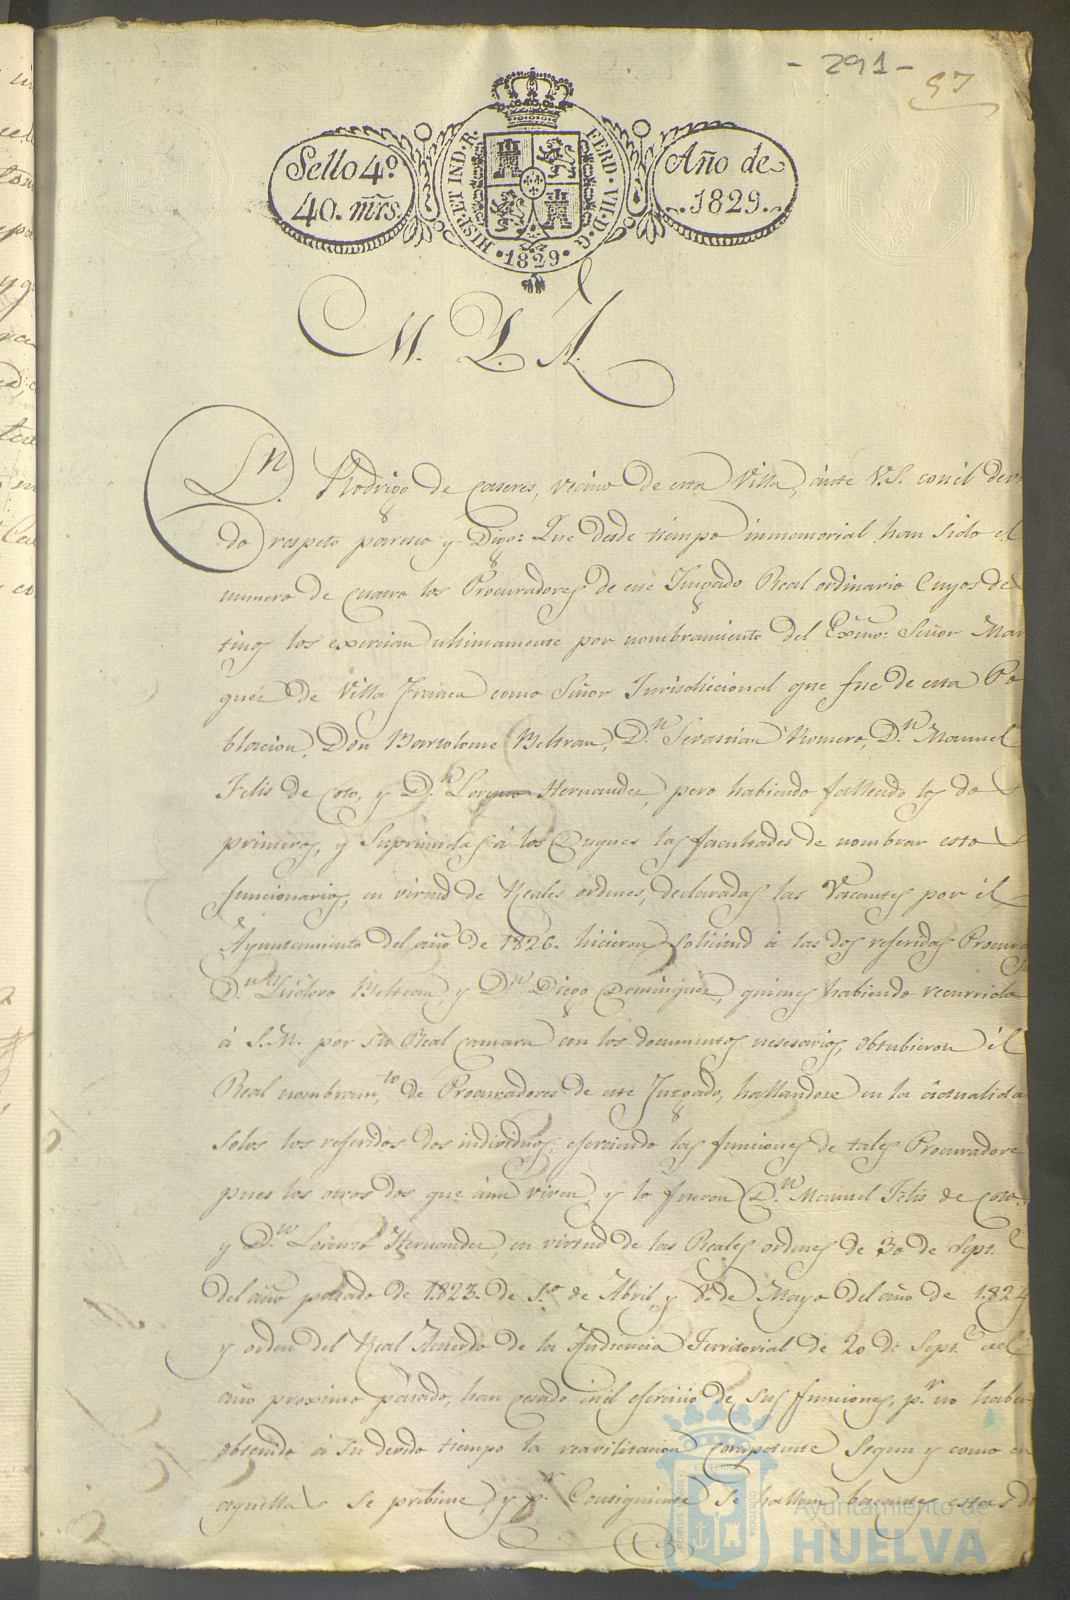 - 291 -
97
Sello 4º
40. mrs.
HISP. ET IND. R.
FERD. VII. D. G.
1829
Año de
1829.
M. Y. A.
Dn. Rodrigo de Caseres, vecino de esta Villa, ánte V.S. con él devi
do respeto paresco y Digo: Que desde tiempo inmemorial han sido el
numero de cuatro los Procuradores de este Juzgado Real ordinario Cuyos des
tinos los exercian ultimamente por nombramiento del Exmo: Señor Mar
quez de Villa Franca como Señor Jurisdiccional que fue de esta Po
blacion, Don Bartolome Beltran, Dn. Sevastian Romero, Dn. Manuel
Felis de Coto, y Dn. Lorenzo Hernandez, pero habiendo fallecido los dos
primeros, y Suprimidas á los Duques las facultades de nombrar estos
funcionarios, en virtud de Reales ordenes, declaradas las Vacantes por él
Ayuntamiento del año de 1826. hicieron solicitud á las dos referidas Procuras
Dn. Isidoro Beltran, y Dn. Diego Dominguez, quienes habiendo recurrido
á S.M. por su Real camara con los documentos nesesarios, obtubieron él
Real nombramto. de Procuradores de este Juzgado, hallandose en la áctualida
Solos los referidos dos individuos, eserciendo las funciones de tales Procuradore
pues los otros dos que áun viven, y lo fueron Dn. Manuel Felis de Coto,
y Dn. Lorenzo Hernandez, en virtud de las Reales ordenes de 30 de Septe.
del año pasado de 1823. de 1.º de Abril y 8. de Mayo del año de 1824
y orden del Real Acuerdo de la Audiencia Territorial de 20 de Septe. del
año proximo pasado, han cesado en él esercicio de sus funciones, pr. no haber
obtenido á su devido tiempo la reavilitacion competente Segun y como en
aquellas se prebiene, y pr. Consiguiente Se hallan bacantes estas do
Ayuntamiento de
HUELVA